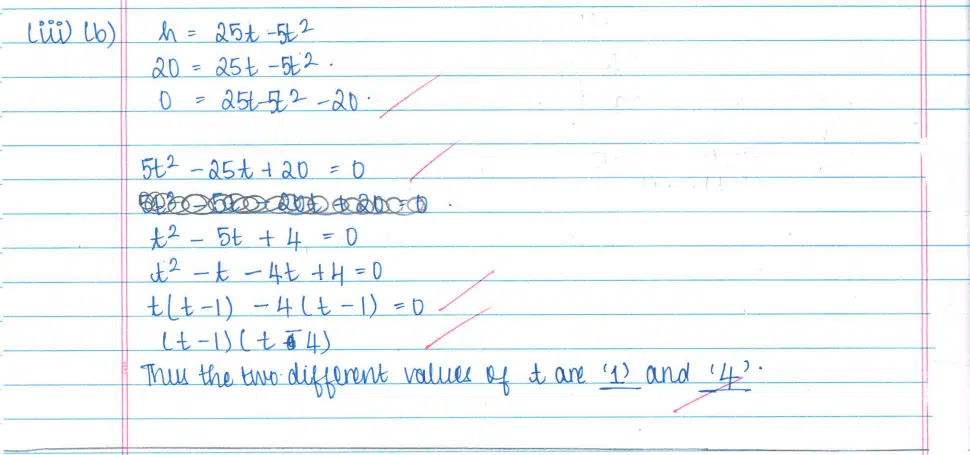 (iii) (b) h = 25t - 5t²
20 = 25t - 5t².
0 = 25t - 5t² - 20.
5t² - 25t + 20 = 0
t² - 5t + 4 = 0
t² - t - 4t + 4 = 0
t(t - 1) - 4(t - 1) = 0
(t - 1)(t - 4)
Thus the two different values of t are '1' and '4'.